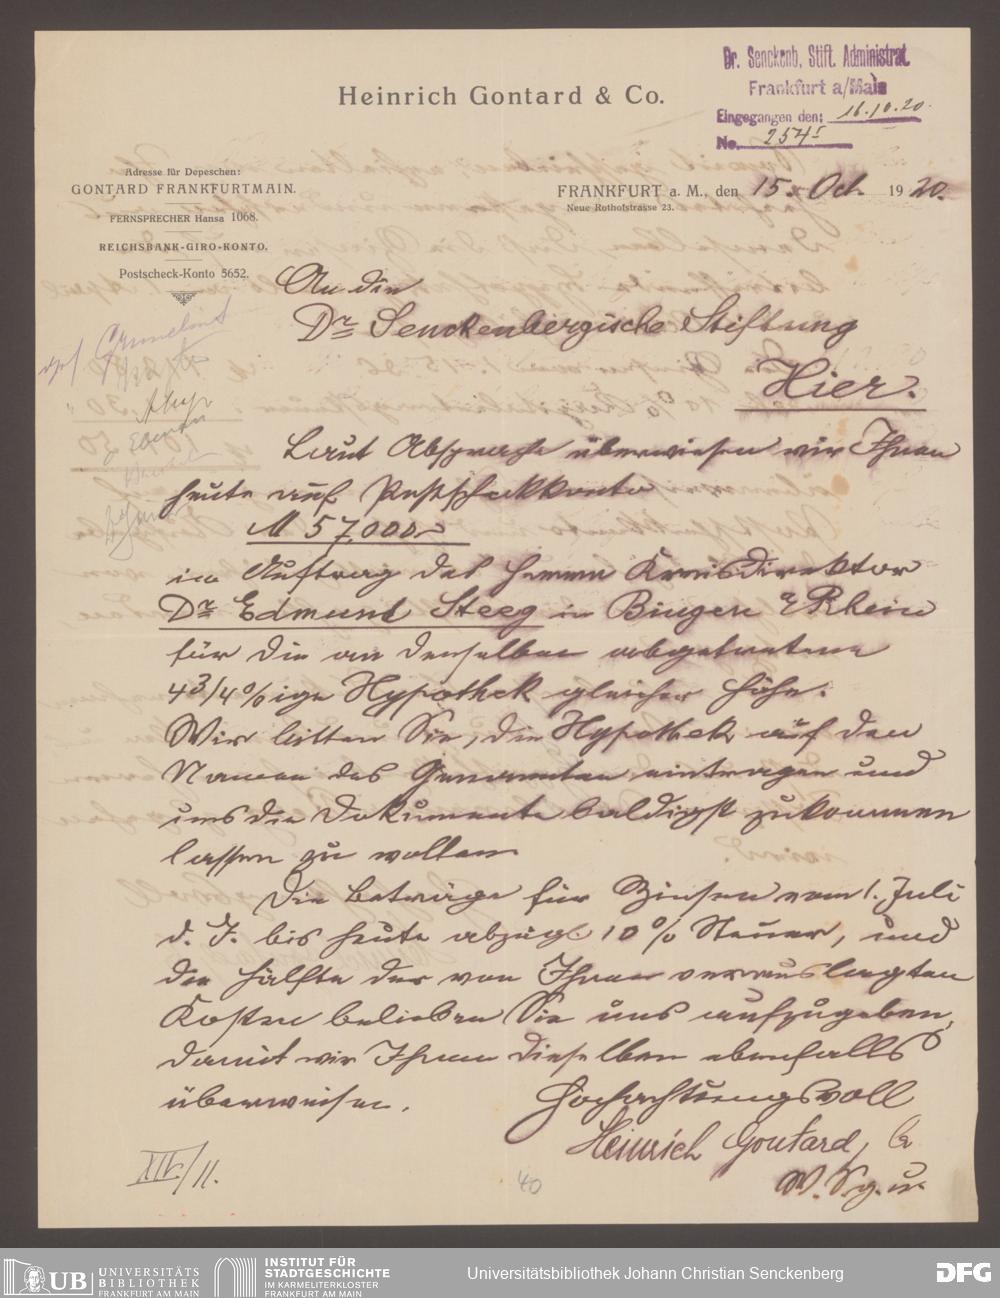 Heinrich Gontard & Co.
Dr. Senckenb. Stift. Administrat.
Frankfurt a/Main
Eingegangen den: 16.10.20.
No. 2545
Adresse für Depeschen:
GONTARD FRANKFURTMAIN.
FERNSPRECHER Hansa 1068.
REICHSBANK-GIRO-KONTO.
Postscheck-Konto 5652.
FRANKFURT a. M., den 15. Oct. 1920.
Neue Rothofstrasse 23.
An die
Dr Senckenbergische Stiftung
Hier.
Laut Absprache überweisen wir Ihnen
heute auf Postscheckkonto
M 57,000.-
im Auftrag des Herrn Kreisdirektor
Dr Edmund Steeg in Bingen Rhein
für die an denselben abgetretene
4 3/4 %ige Hypothek gleicher Höhe.
Wir bitten Sie, die Hypothek auf den
Namen des Genannten eintragen und
uns die Dokumente baldigst zukommen
lassen zu wollen.
Die Beträge für Zinsen vom 1. Juli
d. J. bis heute abzügl. 10 % Steuer, und
die Hälfte der von Ihnen verauslagten
Kosten belieben Sie uns aufzugeben,
damit wir Ihnen dieselben ebenfalls
überweisen.
Hochachtungsvoll
Heinrich Gontard, Co
XIV./11.
40
UB UNIVERSITÄTS
BIBLIOTHEK
FRANKFURT AM MAIN
INSTITUT FÜR
STADTGESCHICHTE
IM KARMELITERKLOSTER
FRANKFURT AM MAIN
Universitätsbibliothek Johann Christian Senckenberg
DFG